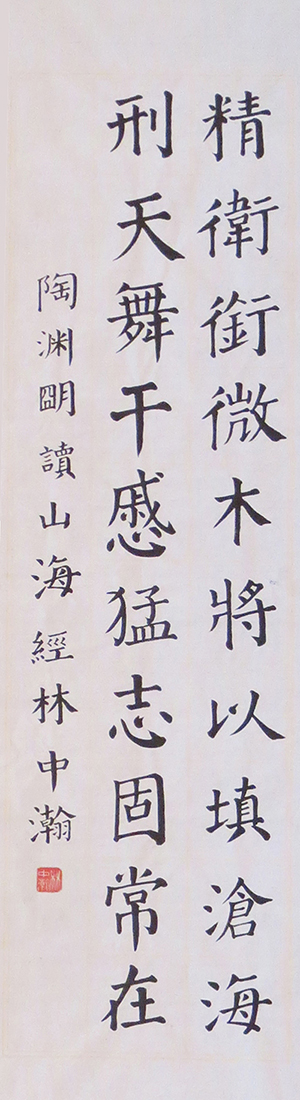 精衛銜微木將以填滄海
刑天舞干慼猛志固常在
陶渊朙讀山海經林中瀚